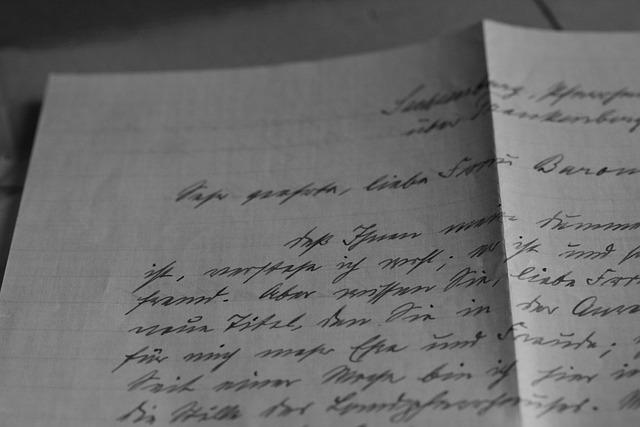 über Frankenberg
Sehr geehrte, liebe Frau Baron
daß Ihnen mein
ist, verstehe ich wohl; es ist und
fremd. Aber wissen Sie, liebe Frau
neue Titel, den Sie in der Anre
für mich mehr Ehre und Freude;
Seit einer Woche bin ich hier in
die Stille des Landpfarrhauses.